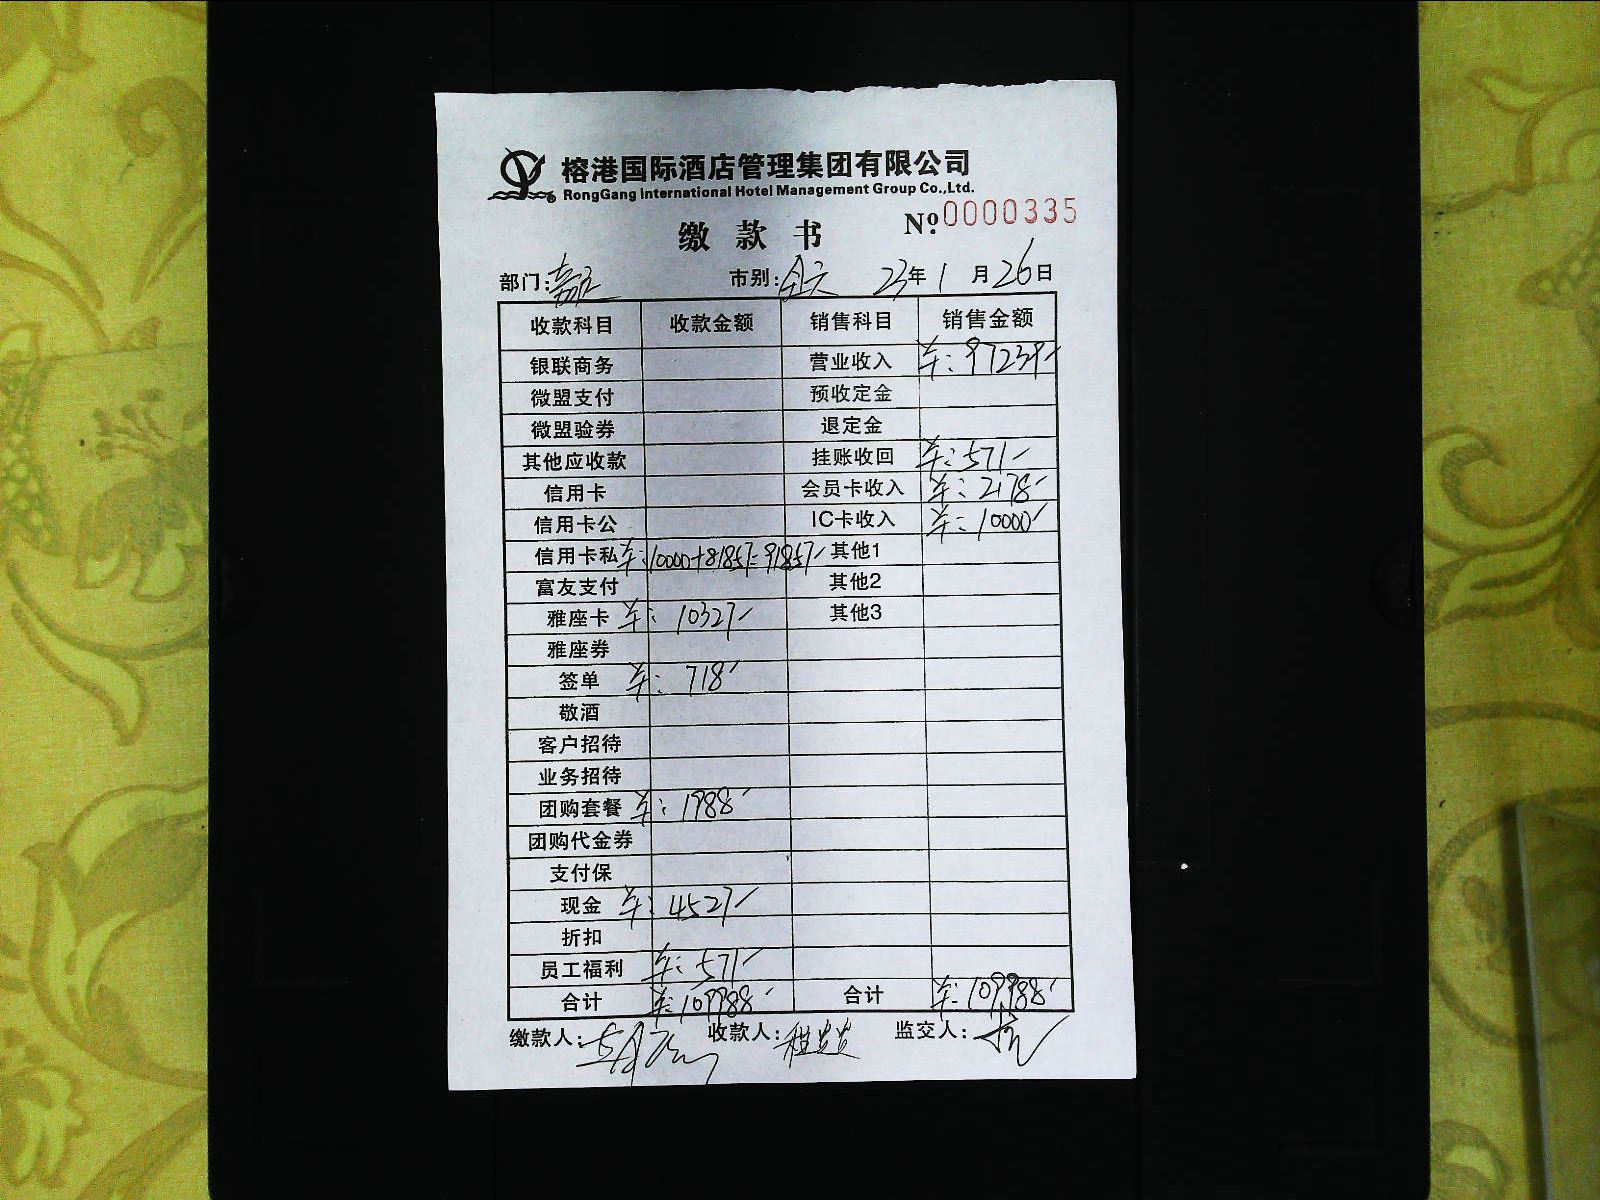 榕港国际酒店管理集团有限公司
RongGang International Hotel Management Group Co.,Ltd.
缴款书 №0000335
部门: 市别:全天 23年1月26日
收款科目 收款金额 销售科目 销售金额
银联商务 营业收入 97239
微盟支付 预收定金
微盟验券 退定金
其他应收款 挂账收回 571
信用卡 会员卡收入 2178
信用卡公 IC卡收入 10000
信用卡私 10000+81857=91857 其他1
富友支付 其他2
雅座卡 10327 其他3
雅座券
签单 718
敬酒
客户招待
业务招待
团购套餐 1988
团购代金券
支付保
现金 4527
折扣
员工福利 571
合计 109988 合计 109988
缴款人: 收款人: 监交人: